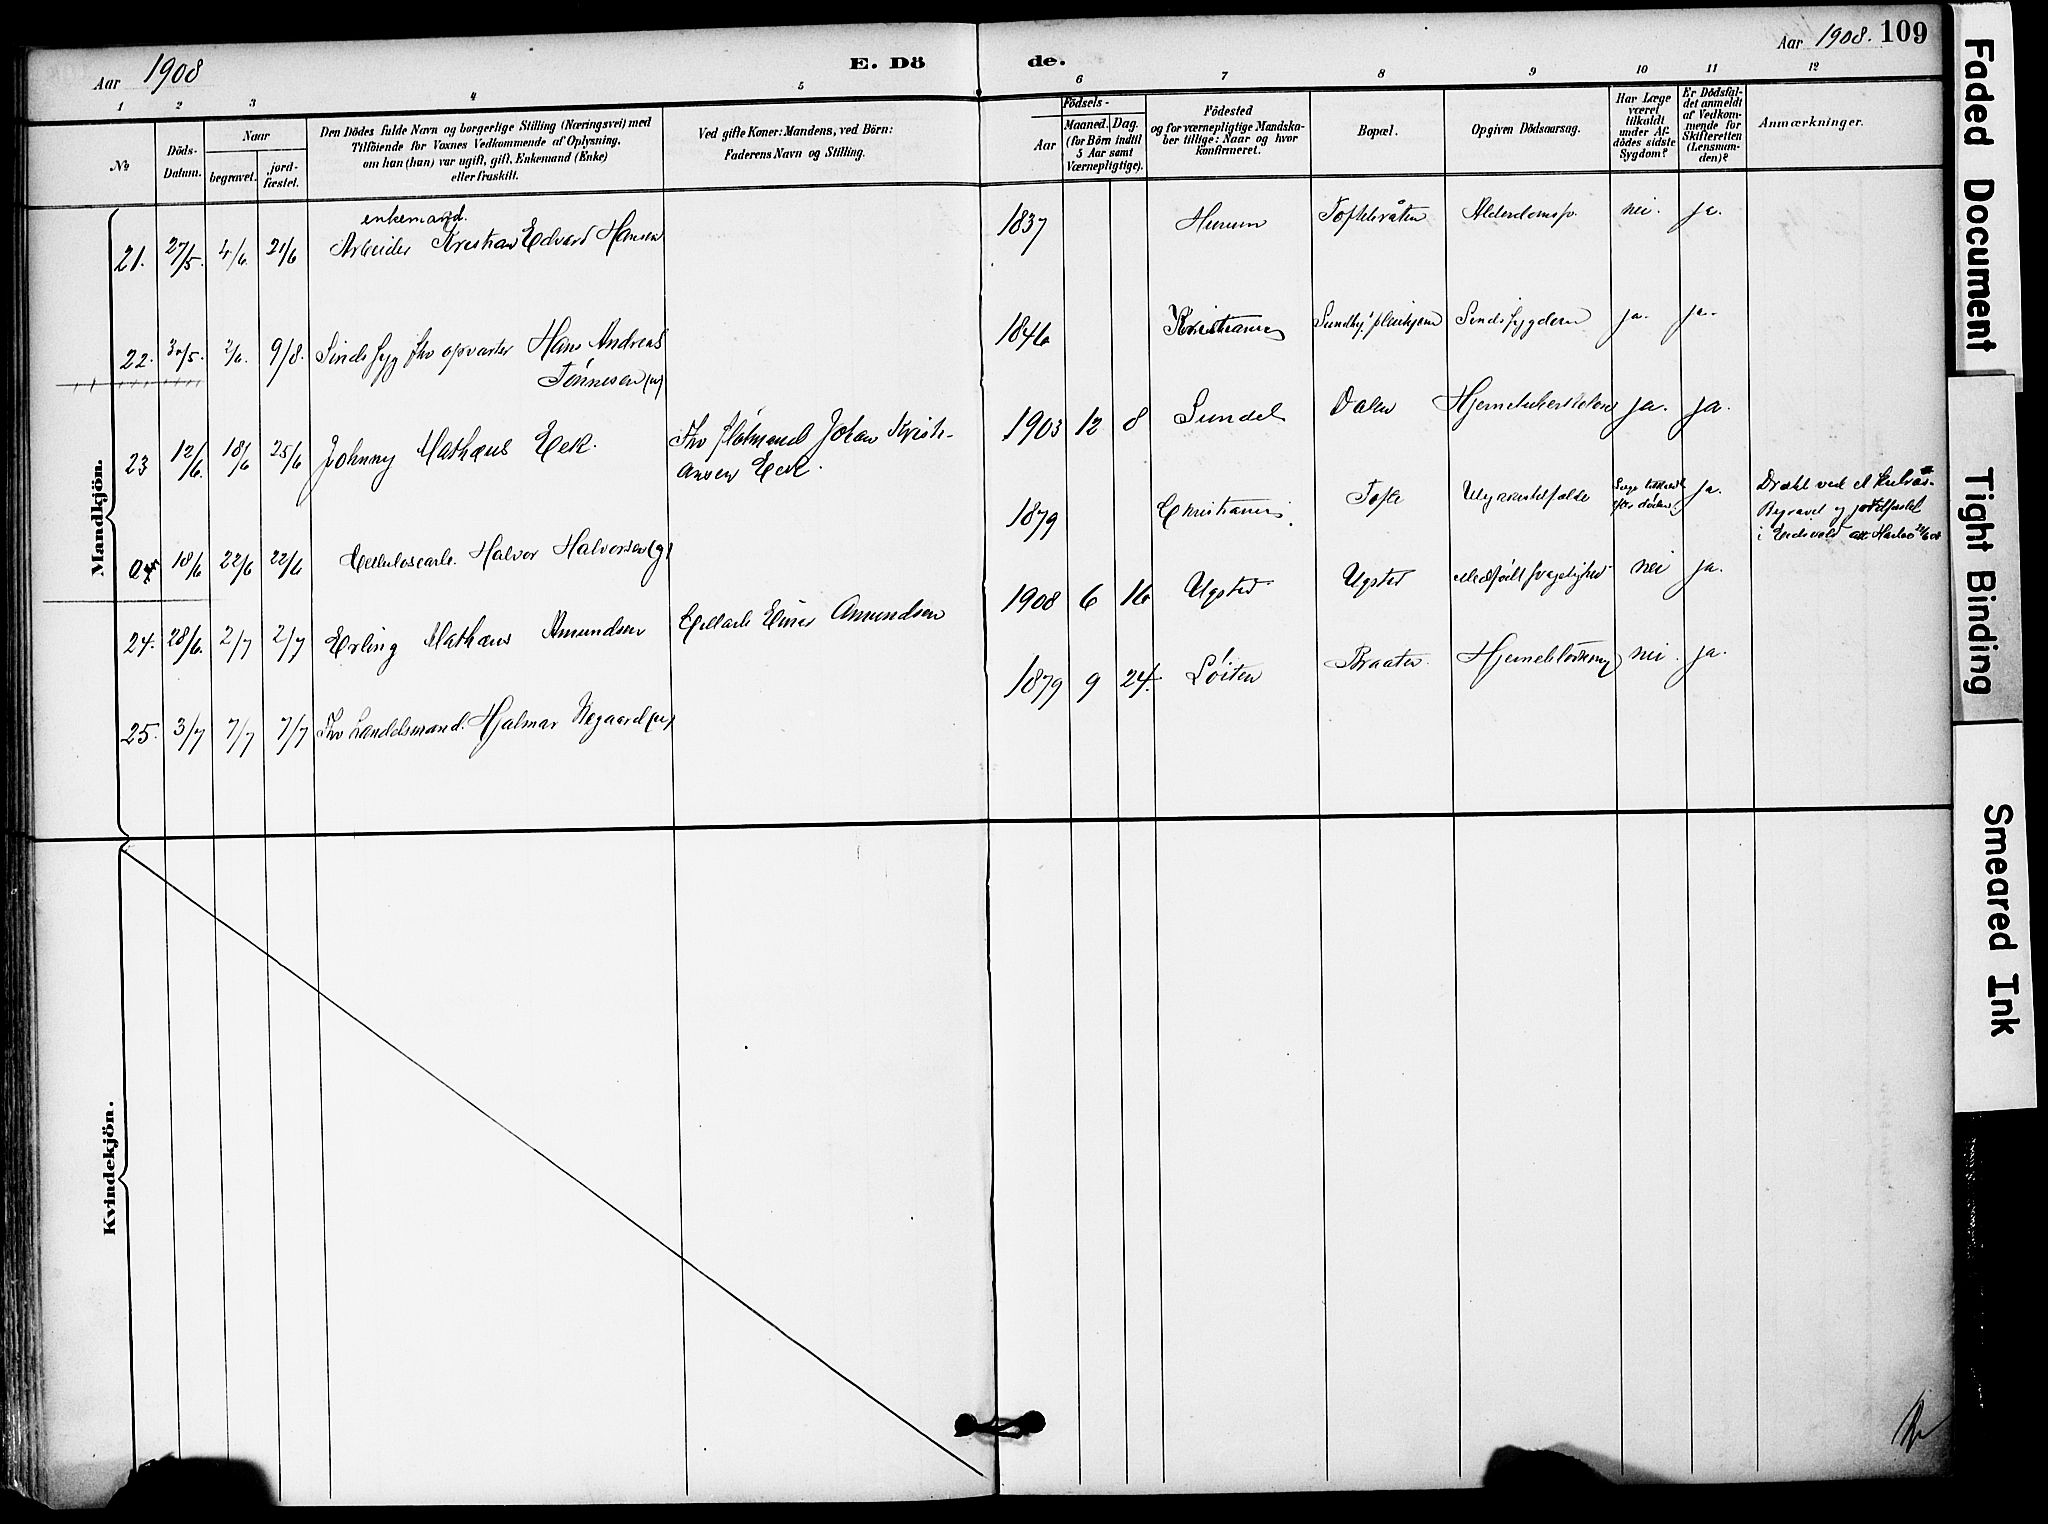 Aar 1908
E. Dö
de.
Aar 1908. 109
1 2 3 4 5 6 7 8 9 10 11 12
No
Döds-
Datum.
Naar
begravet.
jord-
fæstet.
Den Dödes fulde Navn og borgerlige Stilling (Næringsvei) med
Tilföiende for Voxnes Vedkommende af Oplysning,
om han (hun) var ugift, gift, Enkemand (Enke)
eller fraskilt.
Ved gifte Koner: Mandens, ved Börn:
Faderens Navn og Stilling.
Födsels-
Aar
Maaned. Dag.
(for Börn indtil
5 Aar samt
Værnepligtige).
Födested
og for værnepligtige Mandska-
ber tillige: Naar og hvor
konfirmeret.
Bopæl.
Opgiven Dödsaarsag.
Har Læge
været
tilkaldt
under Af-
dödes sidste
Sygdom?
Er Dödsfal-
det anmeldt
af Vedkom-
mende for
Skifteretten
(Lensman-
den)?
Anmærkninger.
Mandkjön.
enkemand.
21. 27/5. 4/6. 21/6 Arbeider Kristian Edvard Hansen 1837 Hurum Alderdomssv. nei. ja.
22. 30/5. 2/6. 9/8. Sindssyg fhv opvarter Hans Andreas
Tønnesen (u) 1846 Kristiania Sundby pleiehjem Sindssygdom ja. ja.
23 12/6. 18/6 25/6 Johnny Mathæus Eek. Fhv Johan Kristi-
ansen Eek. 1903 12 8 Dalen ja. ja.
18/6 22/6 22/6 Cellulosearb. Halvor Halvorsen (g) 1879 Christiania. Tofte Ulykkestilfælde
efter døden. ja.
Begravet og jordfæstet
24. 28/6. 2/7 2/7 Erling Mathæus Amundsen Cell.arb. Einar Amundsen 1908 6 16 Ugsted Ugsted Medfødt svagelighed nei ja.
25. 3/7 7/7 7/7 Fhv Landelsmand. Hjalmar (u) 1879 9 24. Løiten Braaten. nei. ja.
Kvindekjön.
Faded Document
Tight Binding
Smeared Ink